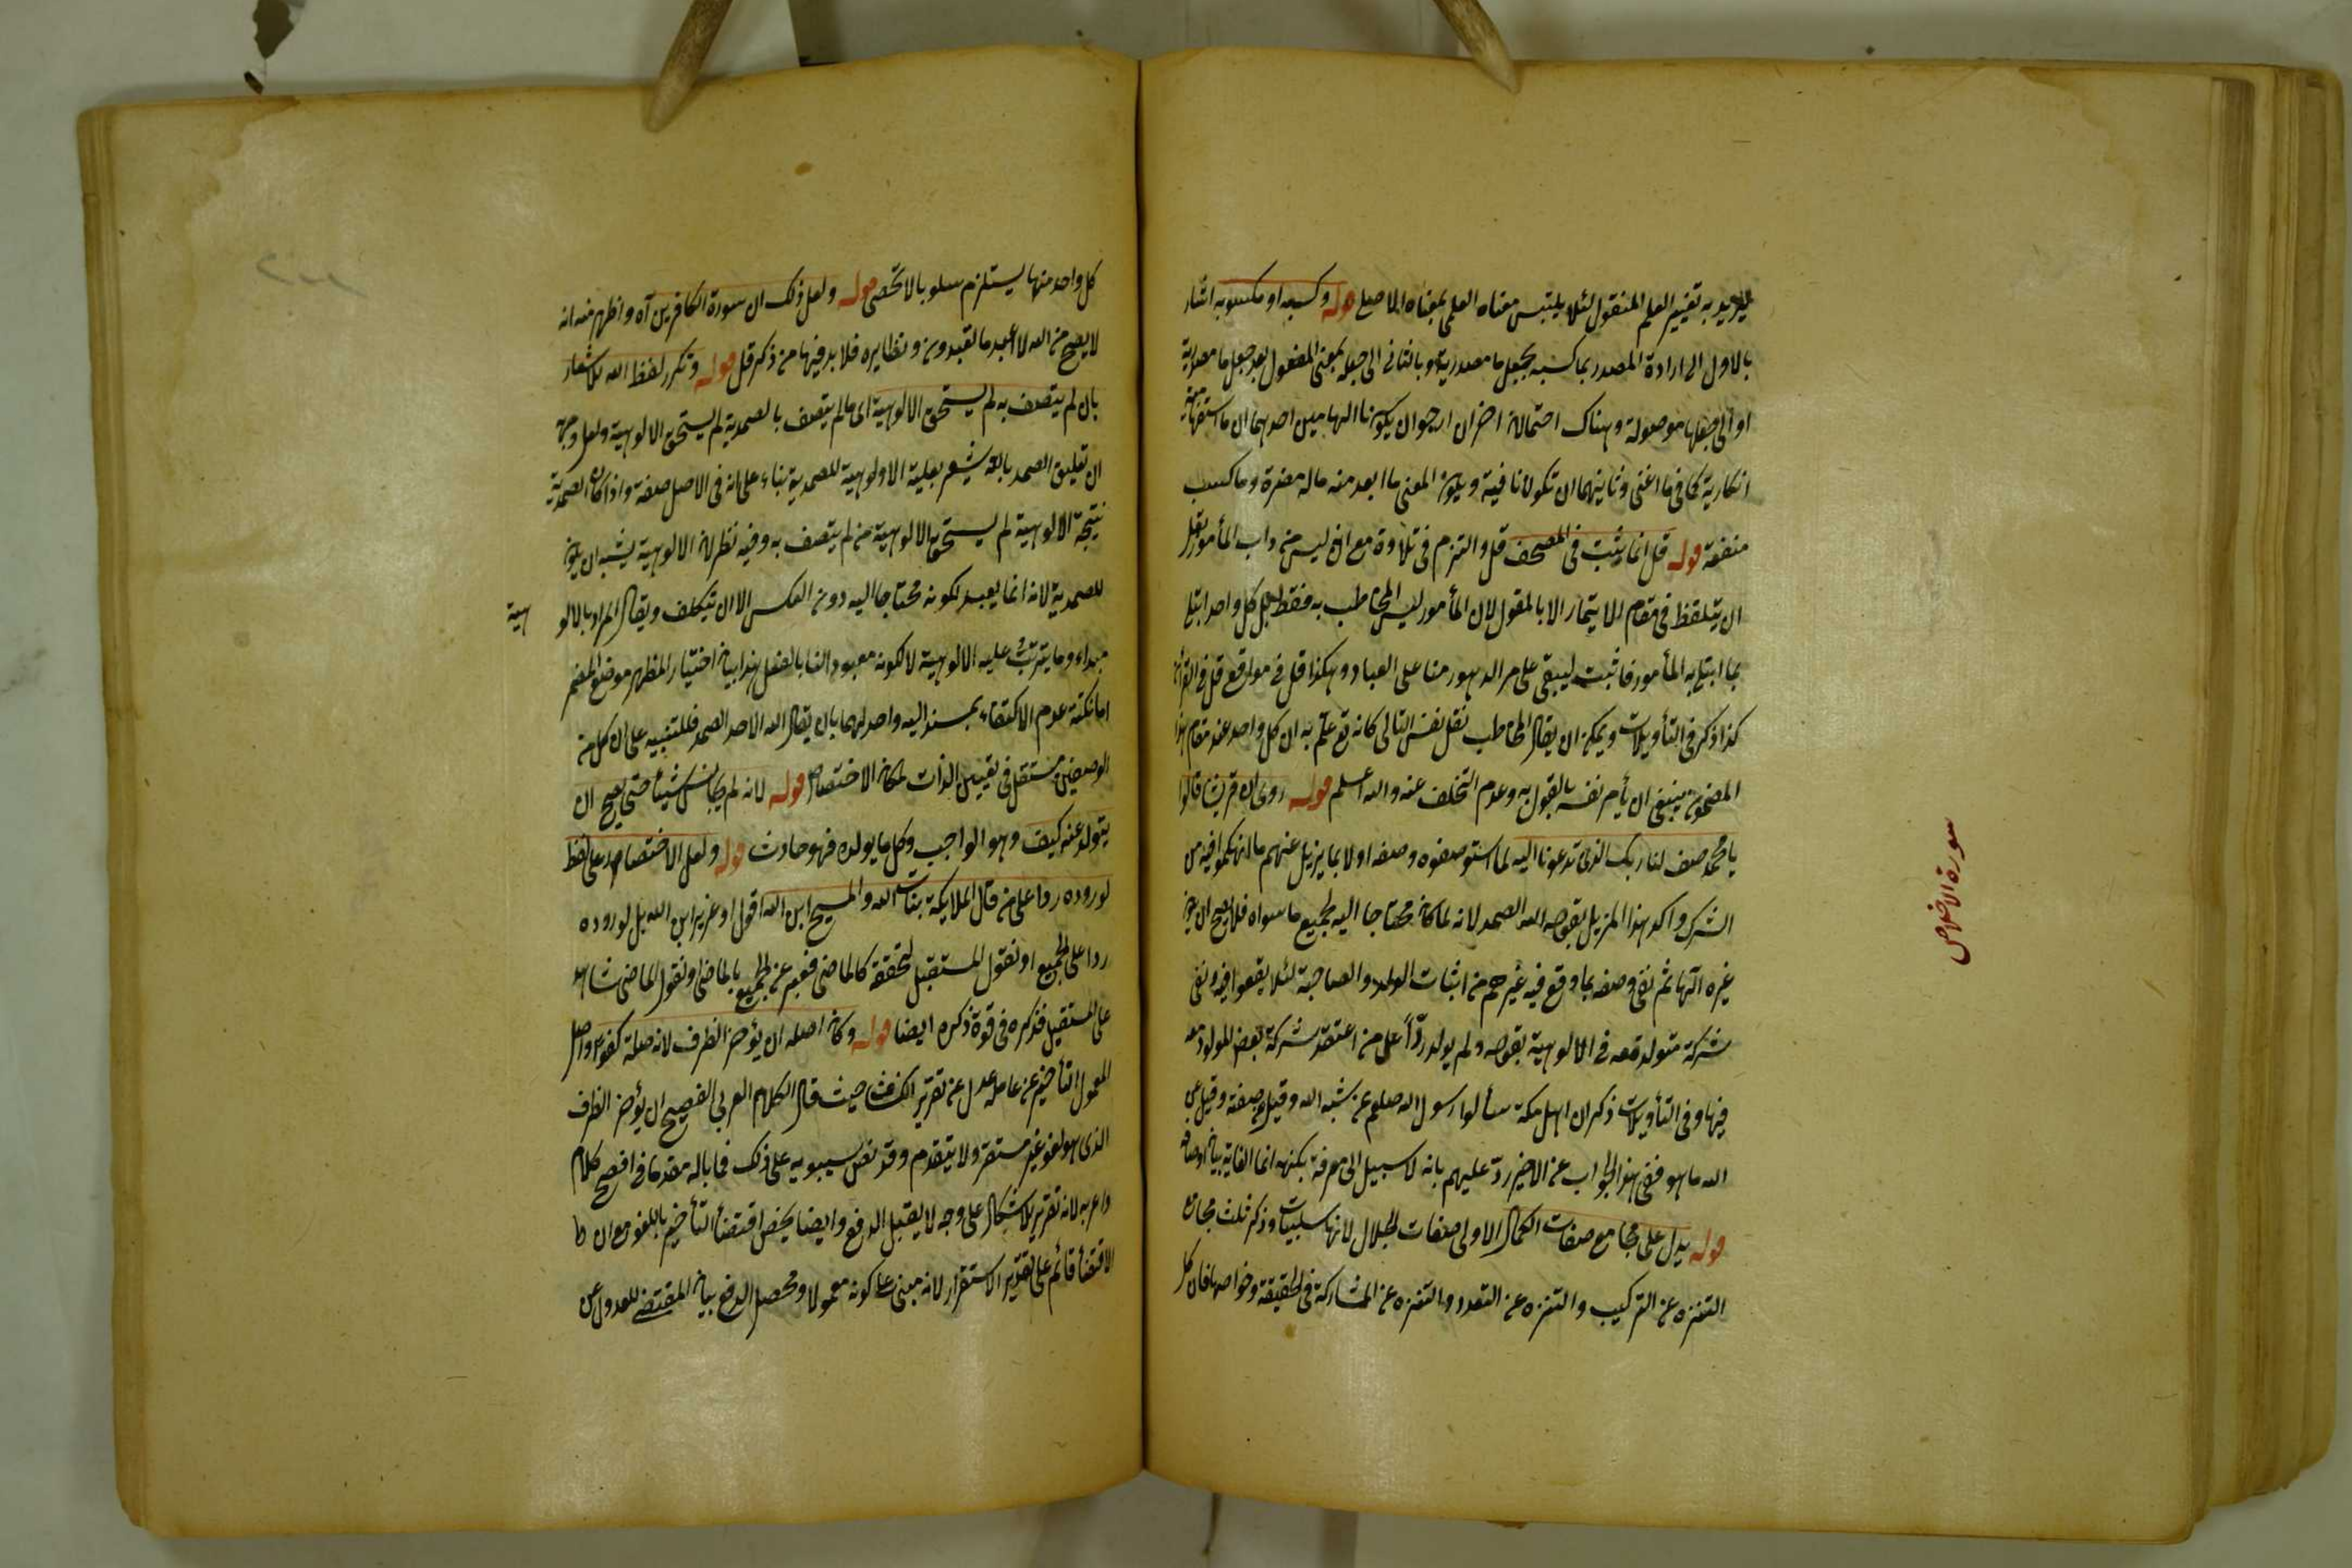 يريد به تغيير العلم المنقول لئلا يلتبس معناه العلمي بمعناه الاصلي قوله وكسبه او مكسوبه اشار
بالاول الى ارادة المصدر بما كسبه بجعل ما مصدرية وبالثاني الى جعله بمعنى المفعول بعد جعل ما مصدرية
او الى جعلها موصولة وهناك احتمالان اخران ارجو ان يكونا الهاميين احدهما ان ما استفهامية
انكارية كما في ما اغنى وثانيهما ان تكون نافية ويكون المعنى ما ابعد منه ماله مضرة وما كسب
منفعة قوله قل انما يثبت في المصحف قل والتزم في تلاوة مع انه ليس من داب المأمور بقل
ان يتلفظ في مقام الايتمار الا بالمقول لان المأمور ليس المخاطب به فقط بل كل واحد ابتلي
بما ابتلى به المأمور فاثبت ليبقى على مر الدهور منا على العباد وهكذا قل في مواقع قل في القرآن
كذا ذكر في التأويلات ويمكن ان يقال المخاطب بقل نفس التالي كانه تع علم به ان كل واحد عند مقام هذا
المضمون ينبغي ان يأمر نفسه بالقول به وعدم التخلف عنه والله اعلم قوله روى ان قريشا قالوا
يا محمد صف لنا ربك الذي تدعونا اليه لما استوصفوه وصفه اولا بما يزيل عنهم ما انهمكوا فيه من
الشرك واكد هذا المزيل بقوله الله الصمد لانه لما كان محتاجا اليه لجميع ما سواه فلا يصح ان يكون
غيره الها ثم نفى وصفه بما وقع فيه غيرهم من اثبات الولد والصاحبة لئلا يقعوا فيه ونفى
شركة متولد معه في الالوهية بقوله ولم يولد ردّاً على من اعتقد شركة بعض المولود معه
فيها وفي التأويلات ذكر ان اهل مكة سألوا رسول الله صلعم عن شبه الله وقيل عن صفته وقيل عن
الله ما هو ففي هذا الجواب عن الاخير ردّ عليهم بانه لا سبيل الى معرفة بكنهه انما الغاية بيان اوصافه
قوله يدل على مجامع صفات الكمال الاولى صفات الجلال لانها سلبيات وذكر ثلث مجامع
التنزه عن التركيب والتنزه عن التعدد والتنزه عن المشاركة في الحقيقة وخواصها فان كل
سورة الاخلاص
كل واحد منها يستلزم سلوبا لا تحصى قوله ولعل ذلك ان سورة الكافرين آه واظهر منه انه
لا يصح من الله لا اعبد ما تعبدون ونظايره فلا بد فيها من ذكر قل قوله وتكرر لفظ الله للاشعار
بان لم يتصف به لم يستحق الالوهية اى ما لم يتصف بالصمدية لم يستحق الالوهية ولعل وجهه
ان تعليق الصمد بالله يشعر بعلية الالوهية للصمدية بناء على انه في الاصل صفة واذا كان الصمدية
نتيجة الالوهية لم يستحق الالوهية من لم يتصف به وفيه نظر لان الالوهية يشبه ان يكون
للصمدية لانه انما يعبد لكونه محتاجا اليه دون العكس الا ان يتكلف ويقال المراد بالالو
هية
مبداء وما يترتب عليه الالوهية لا كونه معبودا لنا بالفعل هذا بيان اختيار المظهر موضع المضمر
اما نكتة عدم الاكتفاء بمسند اليه واحد لهما بان يقال الله الاحد الصمد فللتنبيه على ان كل من
الوصفين مستقل في تعيين الذات لمكان الاختصاص قوله لانه لم يجانس شيئا حتى يصح ان
يتولد عنه كيف وهو الواجب وكل ما يولده فهو حادث قوله ولعل الاختصار على لفظ
لوروده ردا على من قال الملايكة بنات الله والمسيح ابن الله اقول او عزير ابن الله بل لوروده
ردا على الجميع او نقول المستقبل لتحققه كالماضي فعبر عن الجميع بالماضي او نقول الماضي شاهد
على المستقبل فذكره في قوة ذكره ايضا قوله وكان اصله ان يؤخر الظرف لانه صلة كفوا واصل
المعمول التأخير عن عامله عدل عن تقرير الكشاف حيث قال الكلام العربي الفصيح ان يؤخر الظرف
الذي هو لغو غير مستقر ولا يتقدم وقد نص سيبويه على ذلك فما باله مقدما في افصح كلام
واعربه لانه تقرير للاشكال على وجه لا يقبل الدفع وايضا يخص اقتضأ التأخير باللغو مع ان
الاقتضأ قائم على تقدير الاستقرار لانه مبني على كونه معمولا ومحصل الدفع بيان المقتضى للعدول عن